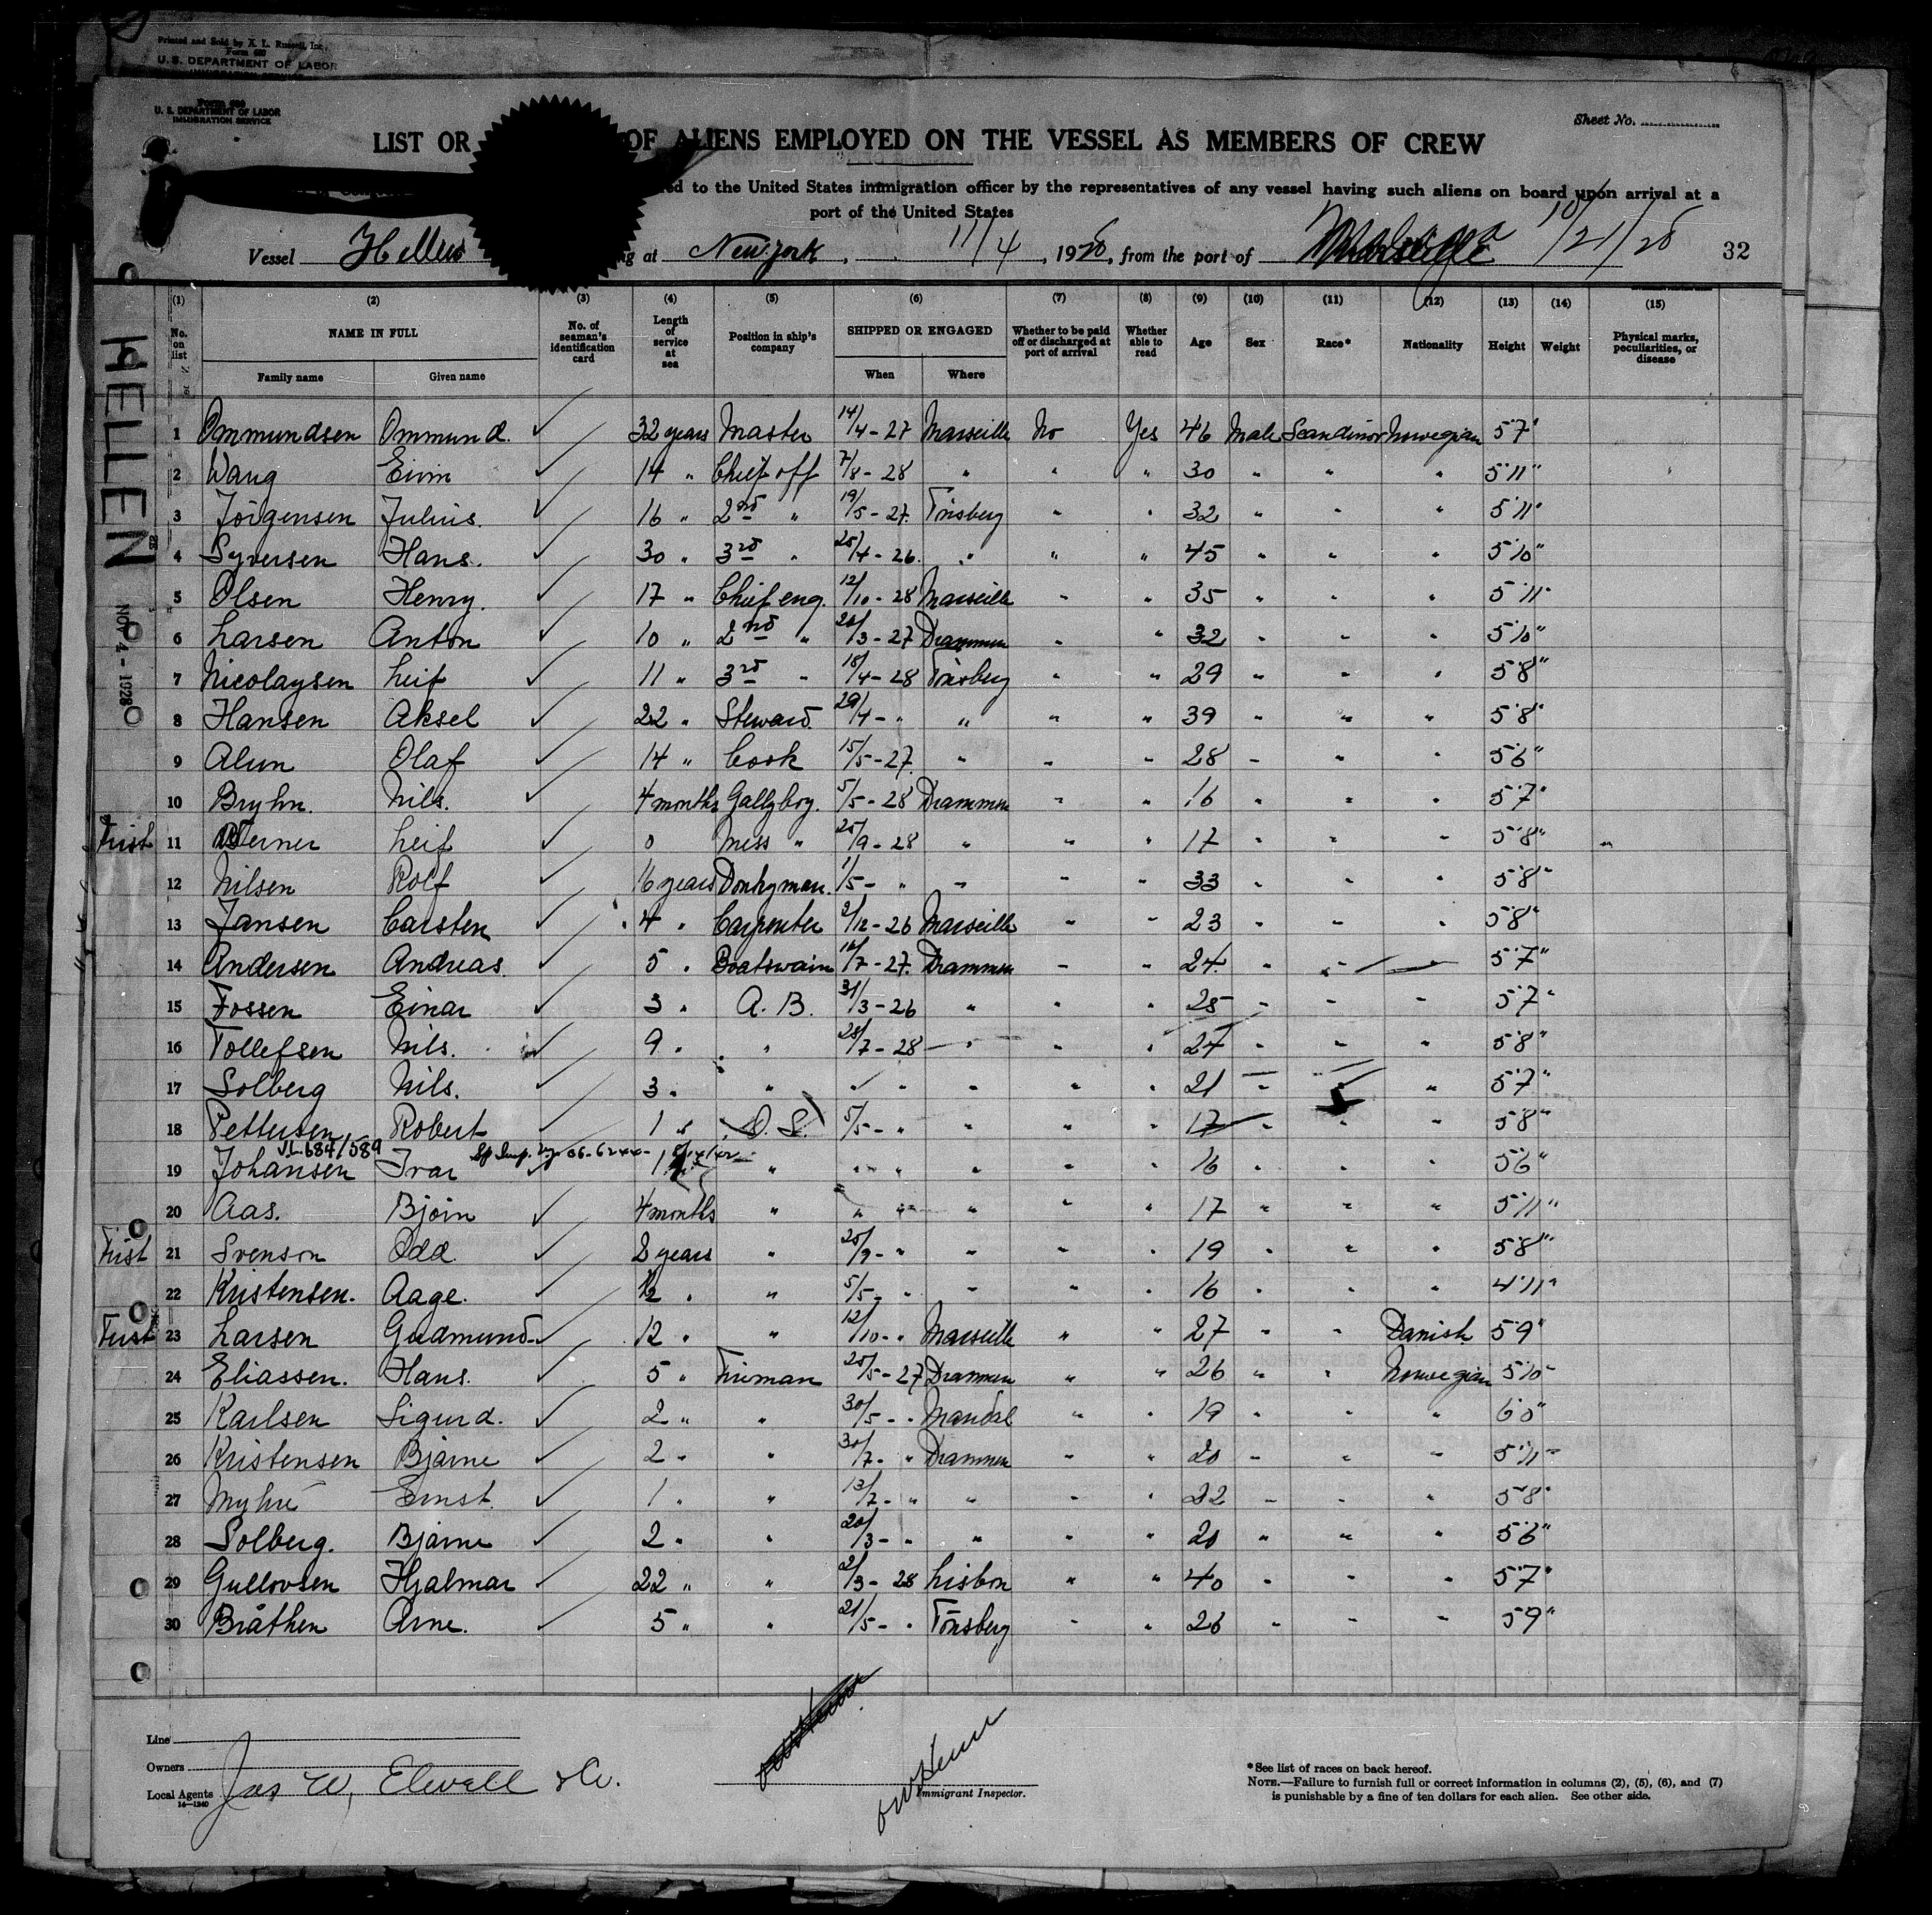 Printed and Sold by A. L. Russell, Inc.
Form 680
U. S. DEPARTMENT OF LABOR
IMMIGRATION SERVICE
Form 680
U. S. DEPARTMENT OF LABOR
IMMIGRATION SERVICE
Sheet No.
LIST OR OF ALIENS EMPLOYED ON THE VESSEL AS MEMBERS OF CREW
ed to the United States immigration officer by the representatives of any vessel having such aliens on board upon arrival at a
port of the United States
Vessel Hellen g at New York, 11/4, 1928, from the port of 10/21/28 32
HELLEN
NOV 4 - 1928
(1) (2) (3) (4) (5) (6) (7) (8) (9) (10) (11) (12) (13) (14) (15)
No. on list NAME IN FULL Family name Given name No. of seaman's identification card Length of service at sea Position in ship's company SHIPPED OR ENGAGED When Where Whether to be paid off or discharged at port of arrival Whether able to read Age Sex Race* Nationality Height Weight Physical marks, peculiarities, or disease
1 Ommundsen Ommund. ✓ 32 years Master 14/4-27 Marseille No Yes 46 Male Scandinav Norwegian 5'7"
2 Wang Eivin ✓ 14 " Chief off 7/8-28 " " " 30 " " " 5'11"
3 Jörgensen Julius. ✓ 16 " 2nd " 19/5-27. Tönsberg " " 32 " " " 5'11"
4 Syversen Hans. ✓ 30 " 3rd " 25/4-26. " " " 45 " " " 5'10"
5 Olsen Henry. ✓ 17 " Chief eng. 12/10-28 Marseille " " 35 " " " 5'11"
6 Larsen Anton ✓ 10 " 2nd " 20/3-27 Drammen " " 32 " " " 5'10"
7 Nicolaysen Leif ✓ 11 " 3rd " 18/4-28 Tönsberg " " 29 " " " 5'8"
8 Hansen Aksel ✓ 22 " Steward 29/4- " " " " 39 " " " 5'8"
9 Alun Olaf ✓ 14 " Cook 15/5-27 " " " 28 " " " 5'6"
10 Bryhn. Nils. ✓ 4 months Gallyboy. 5/5-28 Drammen " " 16 " " " 5'7"
First 11 Werner Leif ✓ 0 Mess " 25/9-28 " " " 17 " " " 5'8"
12 Nilsen Rolf ✓ 16 years Donkyman. 1/5- " " " " 33 " " " 5'8"
13 Jansen Carsten ✓ 4 " Carpenter 2/12-26 Marseille " " 23 " " " 5'8"
14 Andersen Andreas. ✓ 5 " Boatswain 16/7-27. Drammen " " 24 " " " 5'7"
15 Fossen Einar ✓ 3 " A. B. 31/3-26 " " " 25 " " " 5'7"
16 Tollefsen Nils. ✓ 9 " " 28/7-28 " " " 27 " " " 5'8"
17 Solberg Nils. ✓ 3 " " " " " " " 21 " " " 5'7"
18 Pettersen Robert ✓ 1 " O. S. 5/5- " " " " 17 " " " 5'8"
V.L. 684/589
19 Johansen Ivar ✓ 1 " " " " " " " 16 " " " 5'6"
20 Aas. Björn ✓ 4 months " " " " " " 17 " " " 5'11"
First 21 Svenson Odd. ✓ 2 years " 25/9- " " " " 19 " " " 5'8"
22 Kristensen. Aage. ✓ ½ " " 5/5- " " " " 16 " " " 4'11"
First 23 Larsen Gudmund ✓ 12 " " 12/10- " Marseille " " 27 " " Danish 5'9"
24 Eliassen. Hans. ✓ 5 " Fireman 25/5-27 Drammen " " 26 " " Norwegian 5'10"
25 Karlsen Sigurd. ✓ 2 " " 30/5- " Mandal " " 19 " " " 6'0"
26 Kristensen Bjarne ✓ 2 " " 30/7- " Drammen " " 20 " " " 5'11"
27 Myhre Ernst. ✓ 1 " " 13/7- " " " " 22 " " " 5'8"
28 Solberg. Bjarne ✓ 2 " " 20/3- " " " " 20 " " " 5'6"
29 Gullovsen Hjalmar ✓ 22 " " 2/3-28 Lisbon " " 40 " " " 5'7"
30 Bråthen Arne. ✓ 5 " " 21/5- " Tönsberg " " 26 " " " 5'9"
Line
Owners
Local Agents Jas W. Elwell & Co.
14-1240
Immigrant Inspector.
*See list of races on back hereof.
NOTE.—Failure to furnish full or correct information in columns (2), (5), (6), and (7)
is punishable by a fine of ten dollars for each alien. See other side.